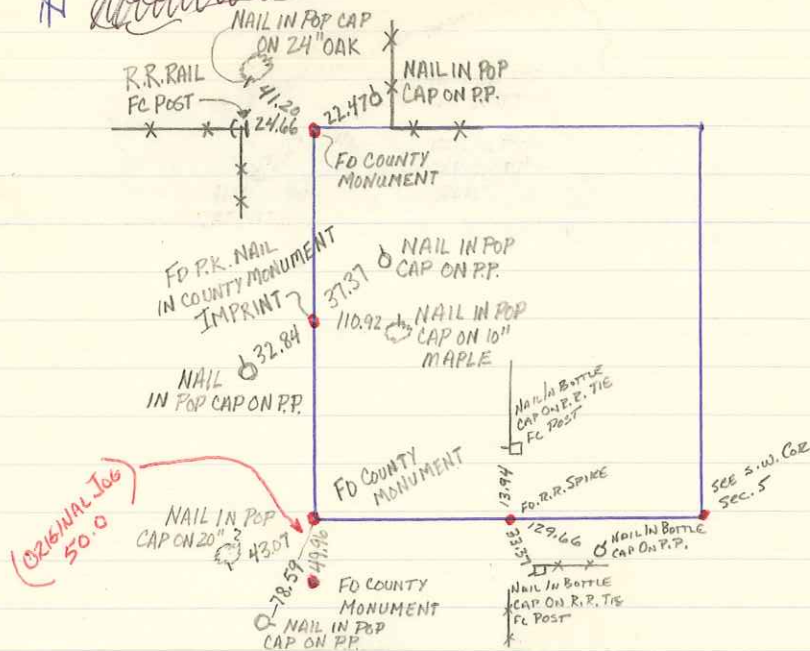 IN
NAIL IN POP CAP
ON 24" OAK
41.20
R.R. RAIL
FC POST
24.66
22.47
NAIL IN POP
CAP ON P.P.
FD COUNTY
MONUMENT
FD P.K. NAIL
IN COUNTY MONUMENT
IMPRINT
37.37
NAIL IN POP
CAP ON P.P.
110.92
NAIL IN POP
CAP ON 10"
MAPLE
32.84
NAIL
IN POP CAP ON P.P.
NAIL IN BOTTLE
CAP ON R.R. TIE
FC POST
13.94
FD COUNTY
MONUMENT
FD. R.R. SPIKE
SEE S.W. COR
SEC. 5
ORIGINAL JOG
50.0
NAIL IN POP
CAP ON 20"
43.07
49.96
78.59
FD COUNTY
MONUMENT
NAIL IN POP
CAP ON P.P.
129.66
33.37
NAIL IN BOTTLE
CAP ON P.P.
NAIL IN BOTTLE
CAP ON R.R. TIE
FC POST